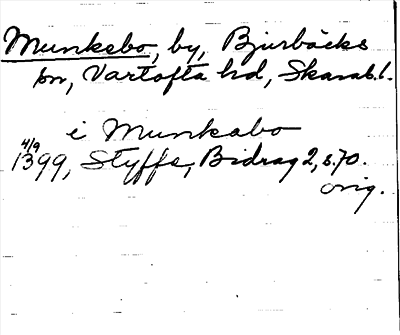 Munkebo, by, Bjurbäcks
sn, Vartofta hd, Skarab.l.
i Munkabo
4/9
1399, Styffe, Bidrag 2, s. 70.
orig.